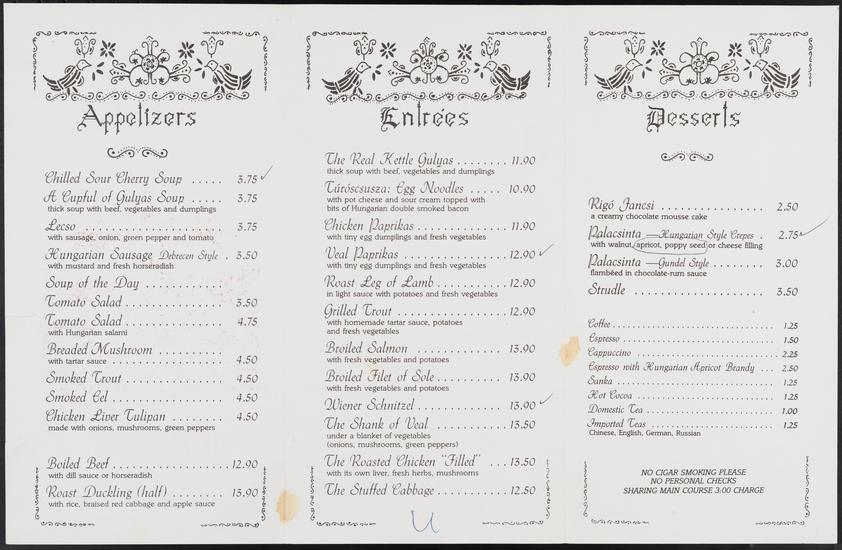 Appetizers
Chilled Sour Cherry Soup ..... 3.75
A Cupful of Gulyas Soup ..... 3.75
thick soup with beef, vegetables and dumplings
Lecso .......... 3.75
with sausage, onion, green pepper and tomato
Hungarian Sausage Debrecen Style . 3.50
with mustard and fresh horseradish
Soup of the Day ..........
Tomato Salad .......... 3.50
Tomato Salad .......... 4.75
with Hungarian salami
Breaded Mushroom ..........
with tartar sauce .......... 4.50
Smoked Trout .......... 4.50
Smoked Eel .......... 4.50
Chicken Liver Tulipan ....... 4.50
made with onions, mushrooms, green peppers
Boiled Beef .......... 12.90
with dill sauce or horseradish
Roast Duckling (half) ....... 13.90
with rice, braised red cabbage and apple sauce
Entrées
The Real Kettle Gulyas ....... 11.90
thick soup with beef, vegetables and dumplings
Túróscsusza: Egg Noodles ..... 10.90
with pot cheese and sour cream topped with
bits of Hungarian double smoked bacon
Chicken Paprikas .......... 11.90
with tiny egg dumplings and fresh vegetables
Veal Paprikas .......... 12.90
with tiny egg dumplings and fresh vegetables
Roast Leg of Lamb .......... 12.90
in light sauce with potatoes and fresh vegetables
Grilled Trout .......... 12.90
with homemade tartar sauce, potatoes
and fresh vegetables
Broiled Salmon .......... 13.90
with fresh vegetables and potatoes
Broiled Filet of Sole .......... 13.90
with fresh vegetables and potatoes
Wiener Schnitzel .......... 13.90
The Shank of Veal .......... 13.50
under a blanket of vegetables
(onions, mushrooms, green peppers)
The Roasted Chicken "Filled" ... 13.50
with its own liver, fresh herbs, mushrooms
The Stuffed Cabbage .......... 12.50
U
Desserts
Rigó Jancsi .......... 2.50
a creamy chocolate mousse cake
Palacsinta —Hungarian Style Crepes . 2.75
with walnut, apricot, poppy seed or cheese filling
Palacsinta —Gundel Style ....... 3.00
flambéed in chocolate-rum sauce
Strudle .......... 3.50
Coffee .......... 1.25
Espresso .......... 1.50
Cappuccino .......... 2.25
Espresso with Hungarian Apricot Brandy ... 2.50
Sanka .......... 1.25
Hot Cocoa .......... 1.25
Domestic Tea .......... 1.00
Imported Teas .......... 1.25
Chinese, English, German, Russian
NO CIGAR SMOKING PLEASE
NO PERSONAL CHECKS
SHARING MAIN COURSE 3.00 CHARGE